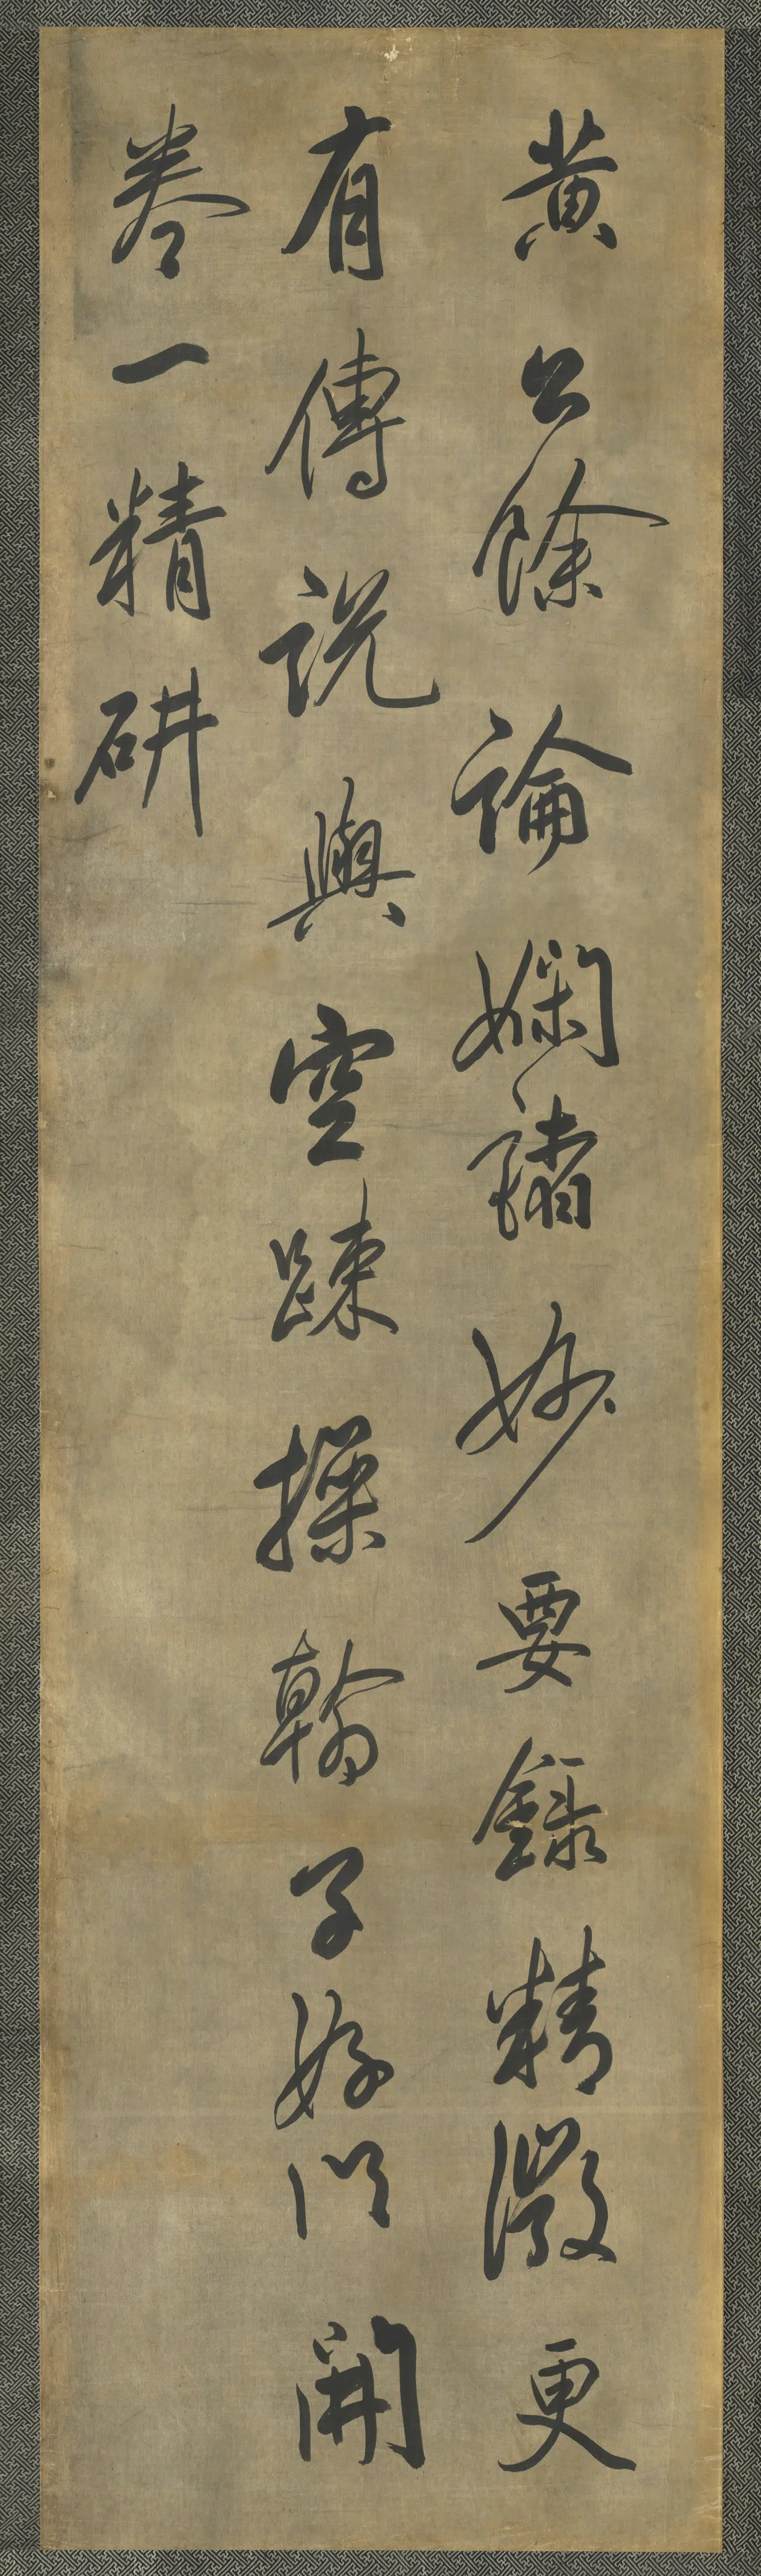 黄公餘論嫻諸妙要錄精微更
有傳說與空踈操翰子好以開
卷一精研